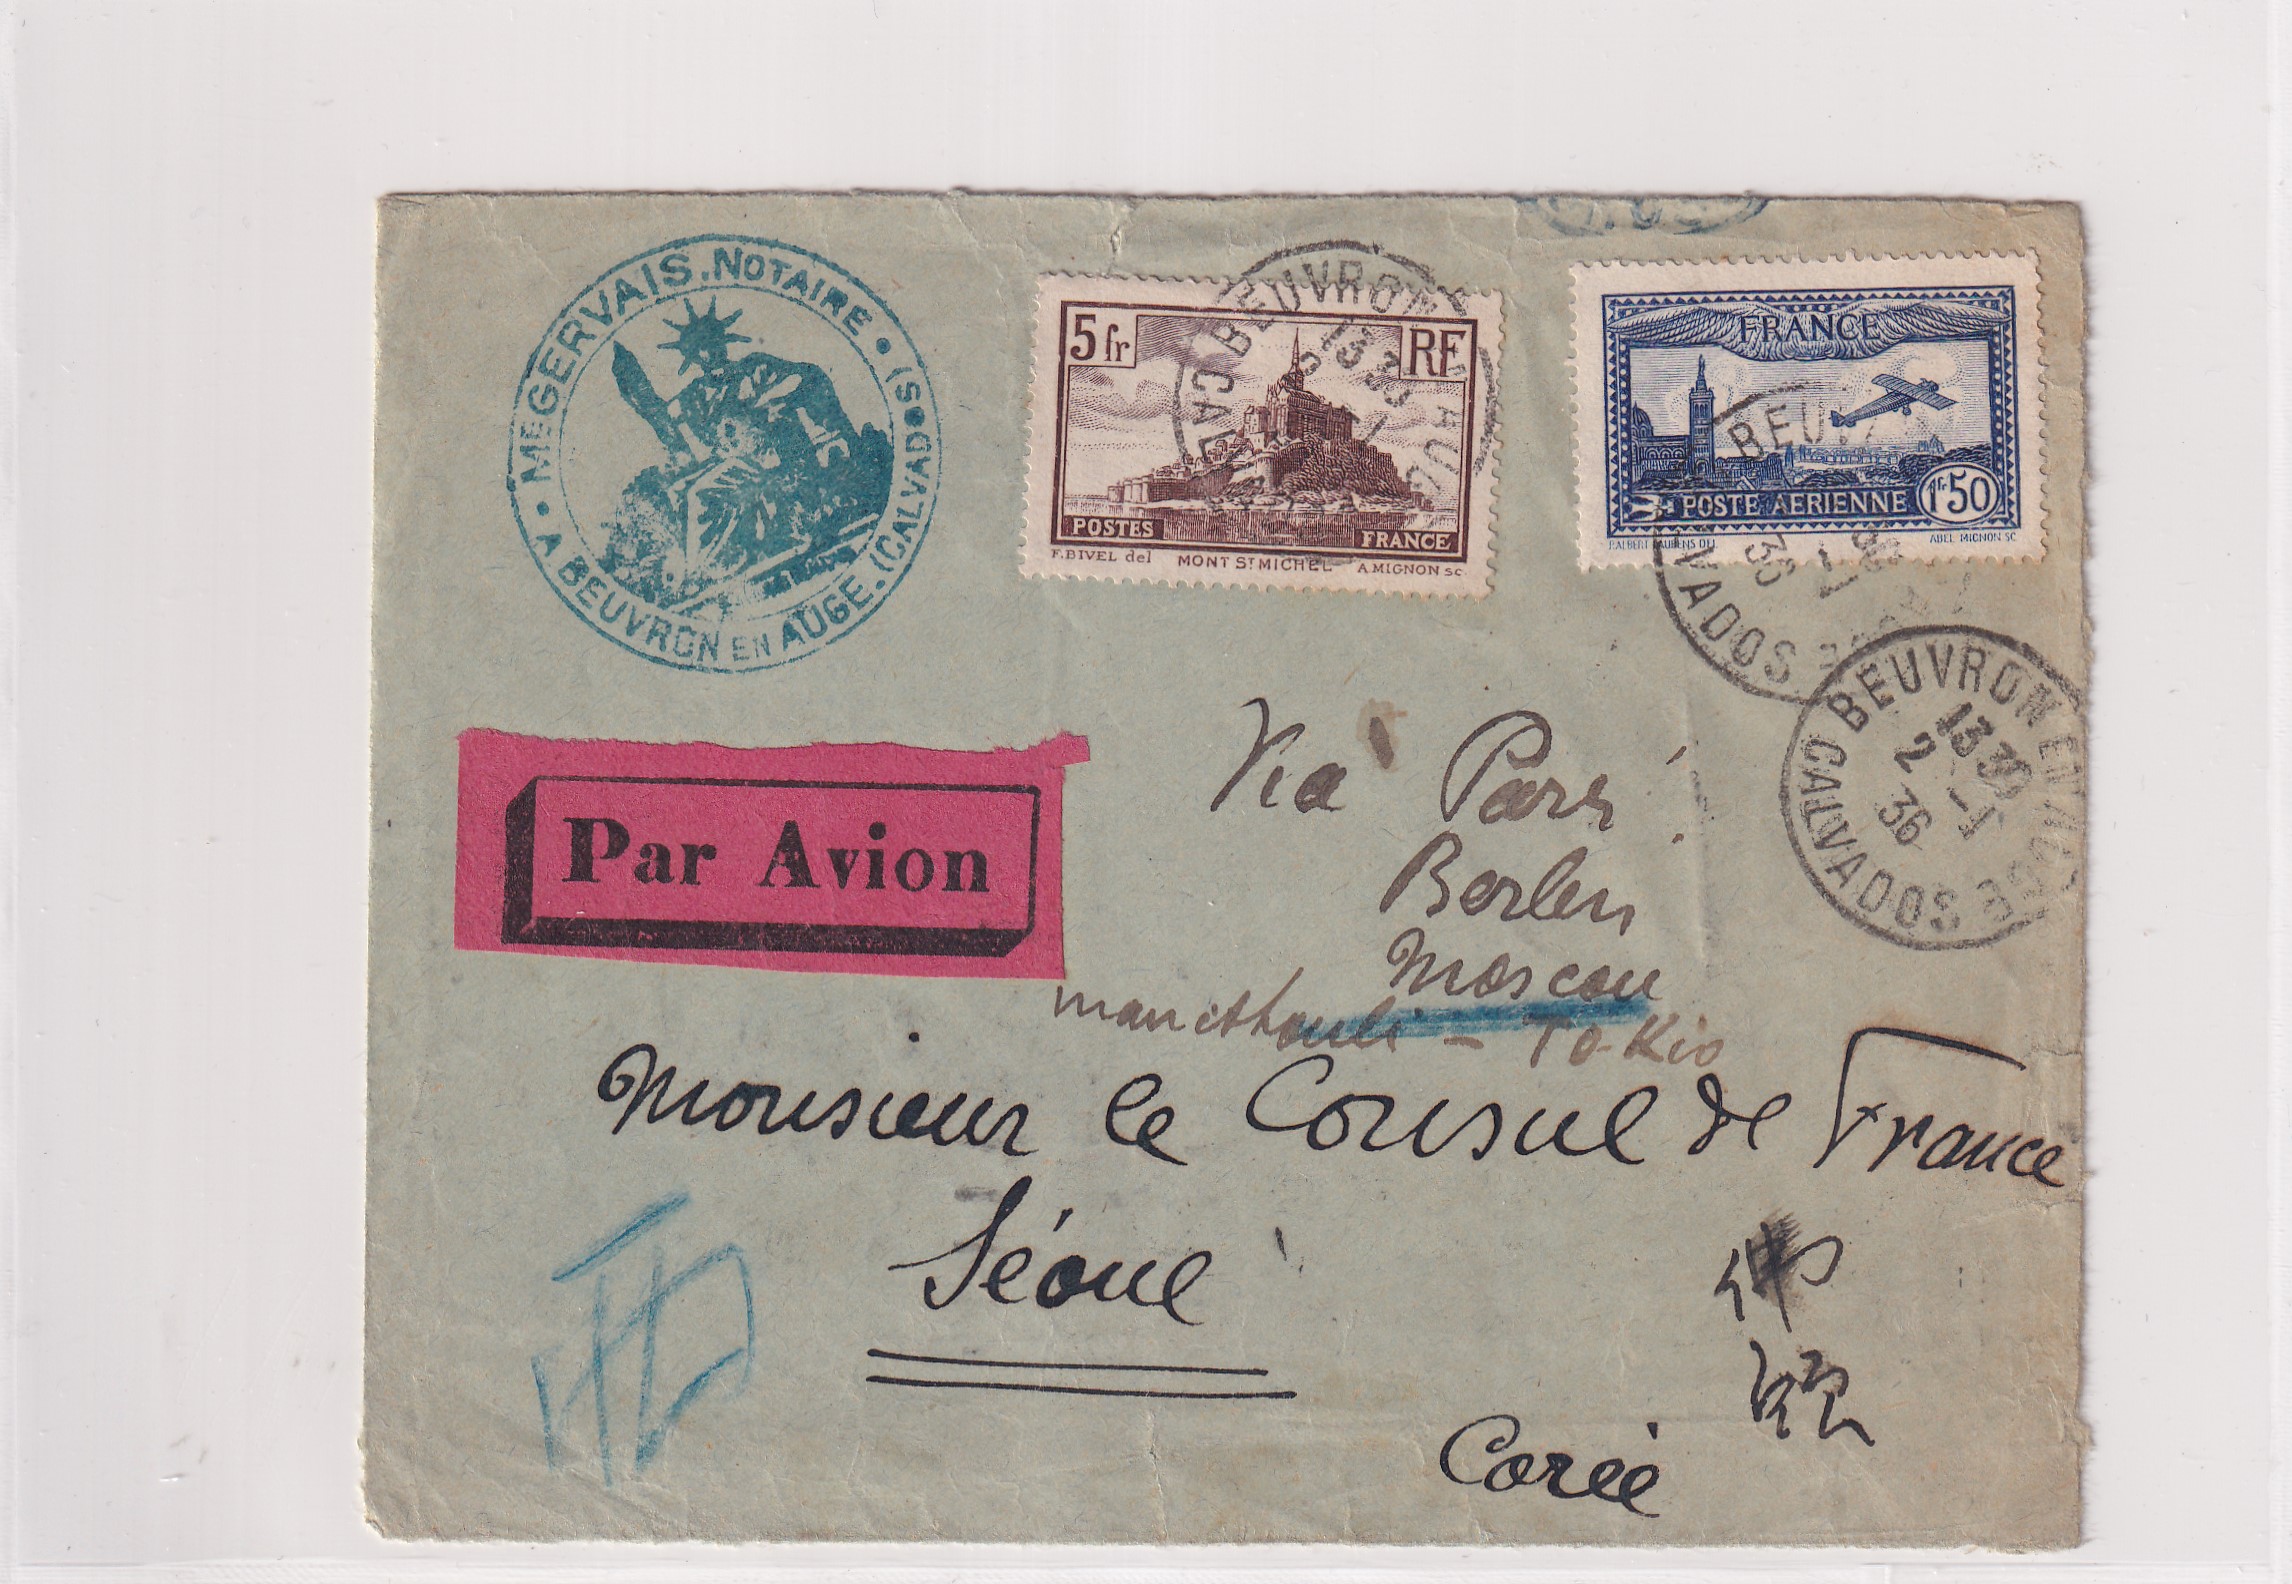 ME GERVAIS. NOTAIRE • A BEUVRON EN AUGE. (CALVADOS) •
5 fr RF
POSTES FRANCE
F. BIVEL del MONT ST MICHEL A. MIGNON SC
BEUVRON
13 30
CALV
FRANCE
POSTE AERIENNE 1fr 50
P. ALBERT LAURENS DEL ABEL MIGNON SC
BEUV
36
VADOS
BEUVRON EN AUGE
13 30
2 -1
36
CALVADOS
Par Avion
Via Paris
Berlin
Moscou
To-Kio
Monsieur le Consul de France
Séoul
Corée